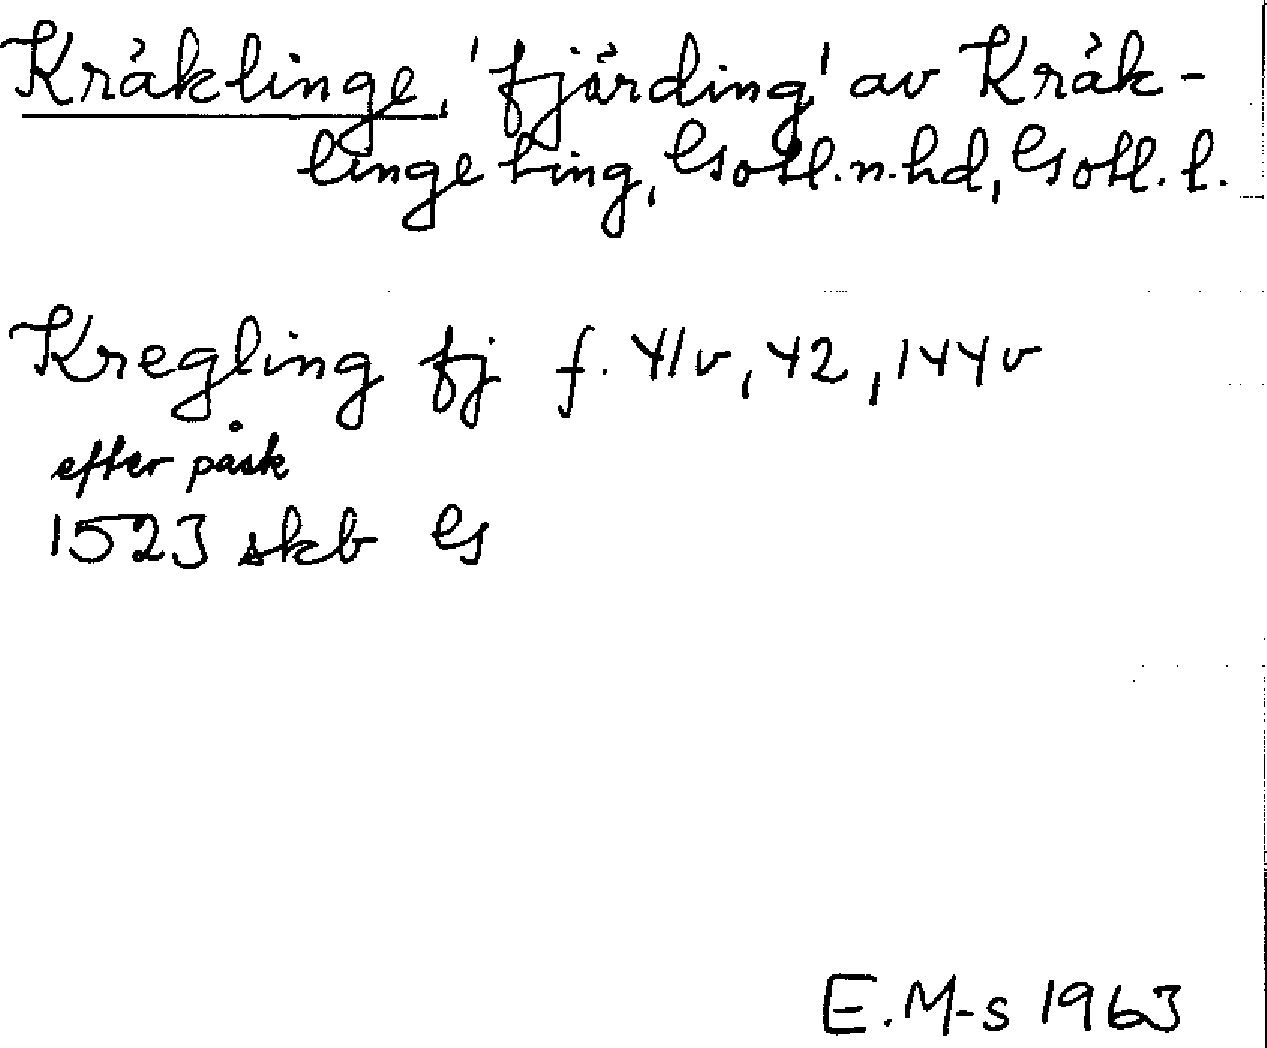 Kräklinge, 'fjärding' av Kräk-
linge ting, Gotl. n. hd, Gotl. l.
Kregling fj f. 41v, 42, 144v
efter påsk
1523 skb G
E. M-s 1963